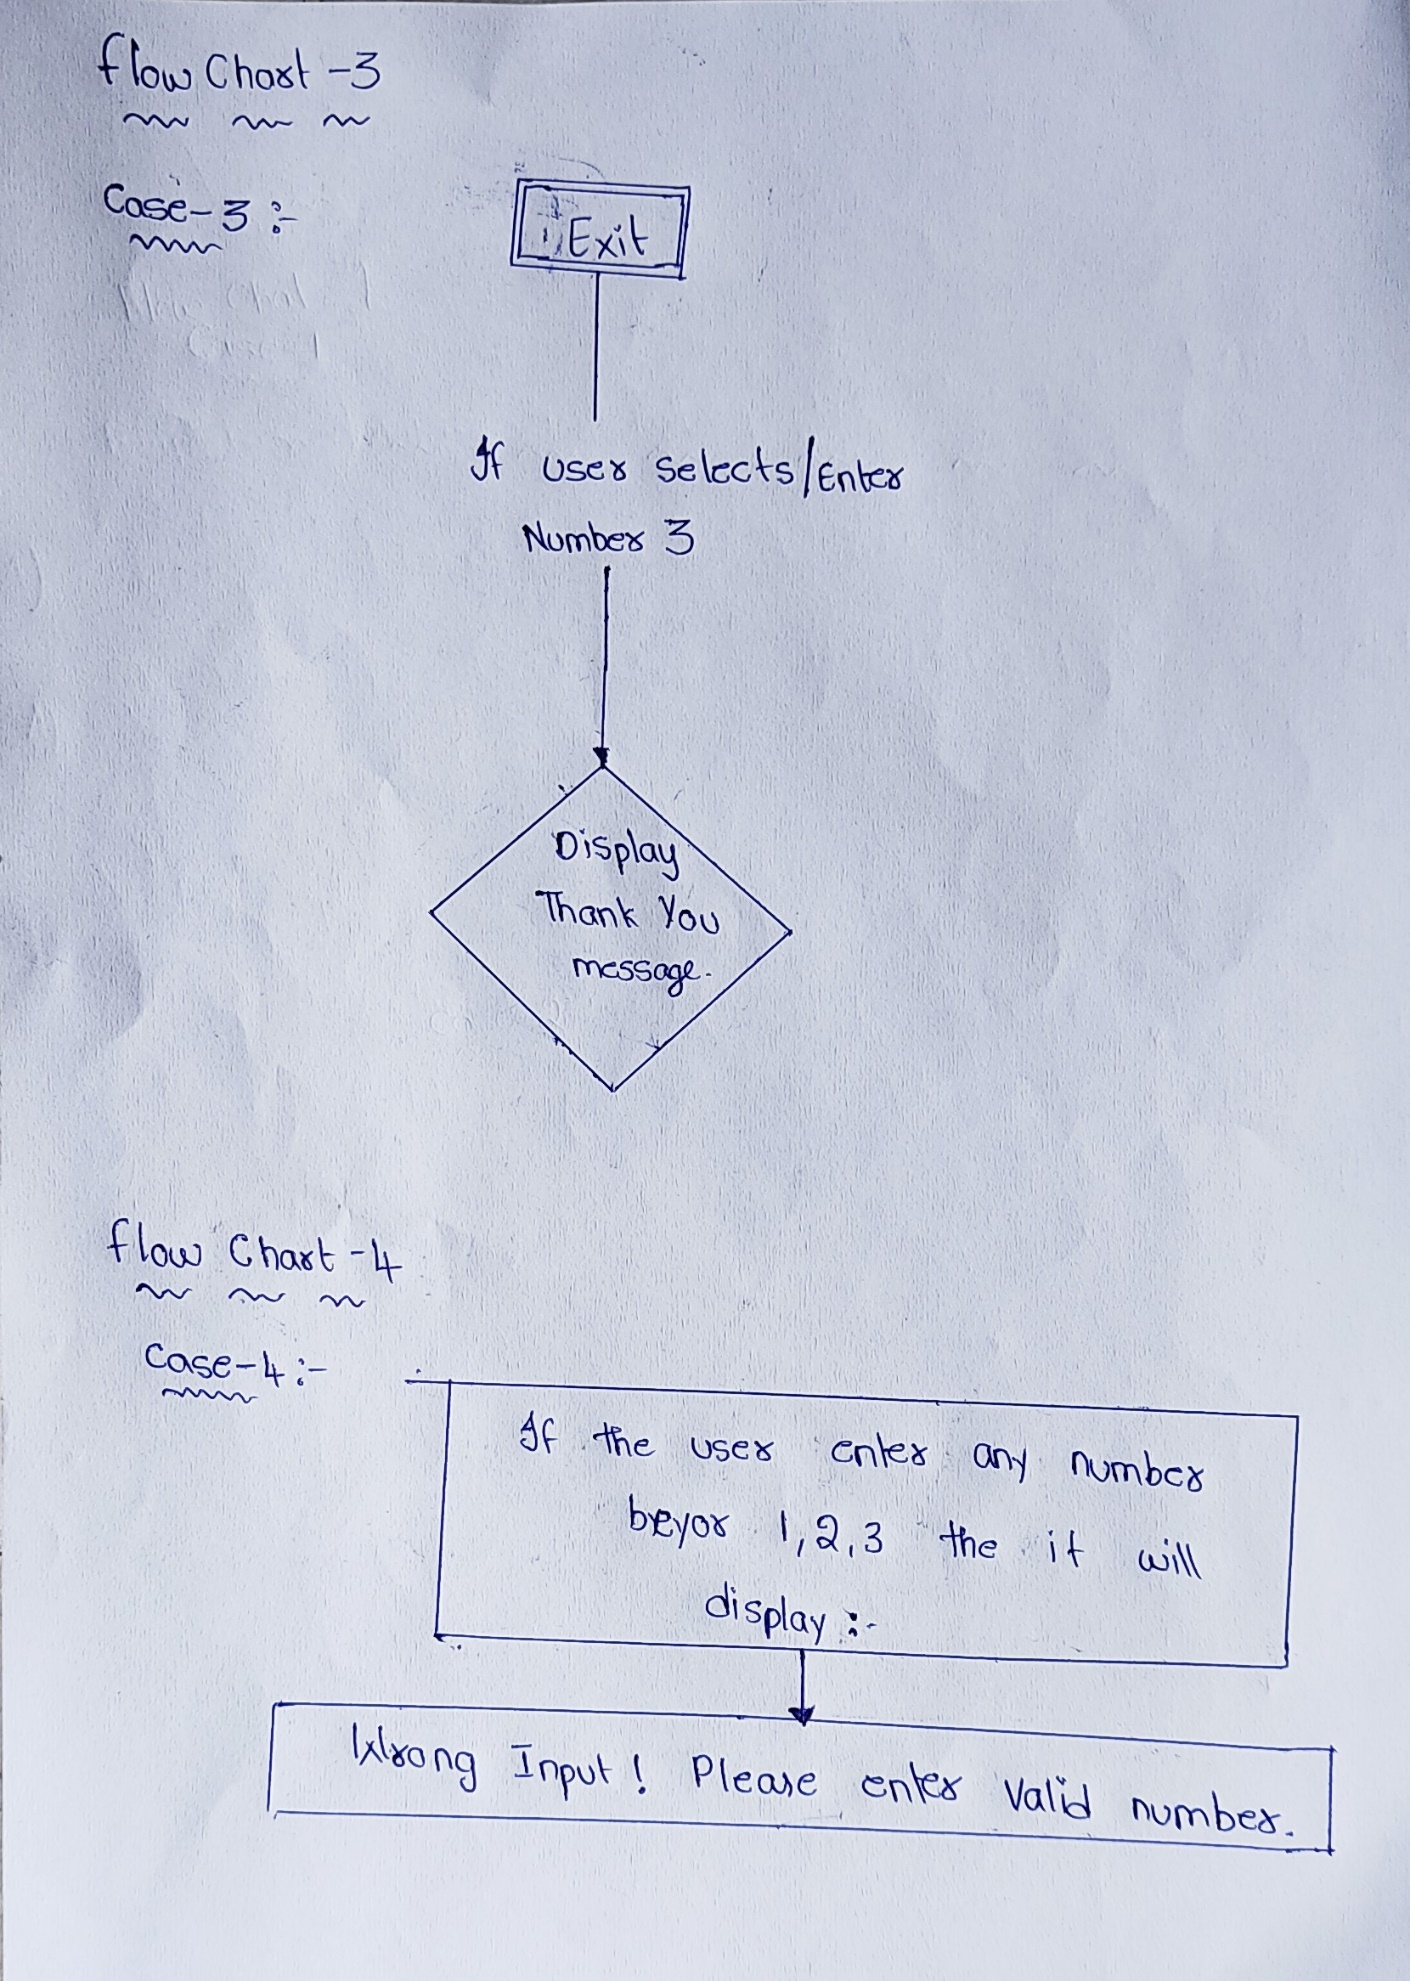 Flow Chart -3
Case-3 :-
Exit
If user selects/Enter
Number 3
Display
Thank You
message.
Flow Chart -4
Case-4 :-
If the user enter any number
beyor 1,2,3 the it will
display :-
Wrong Input! Please enter Valid number.